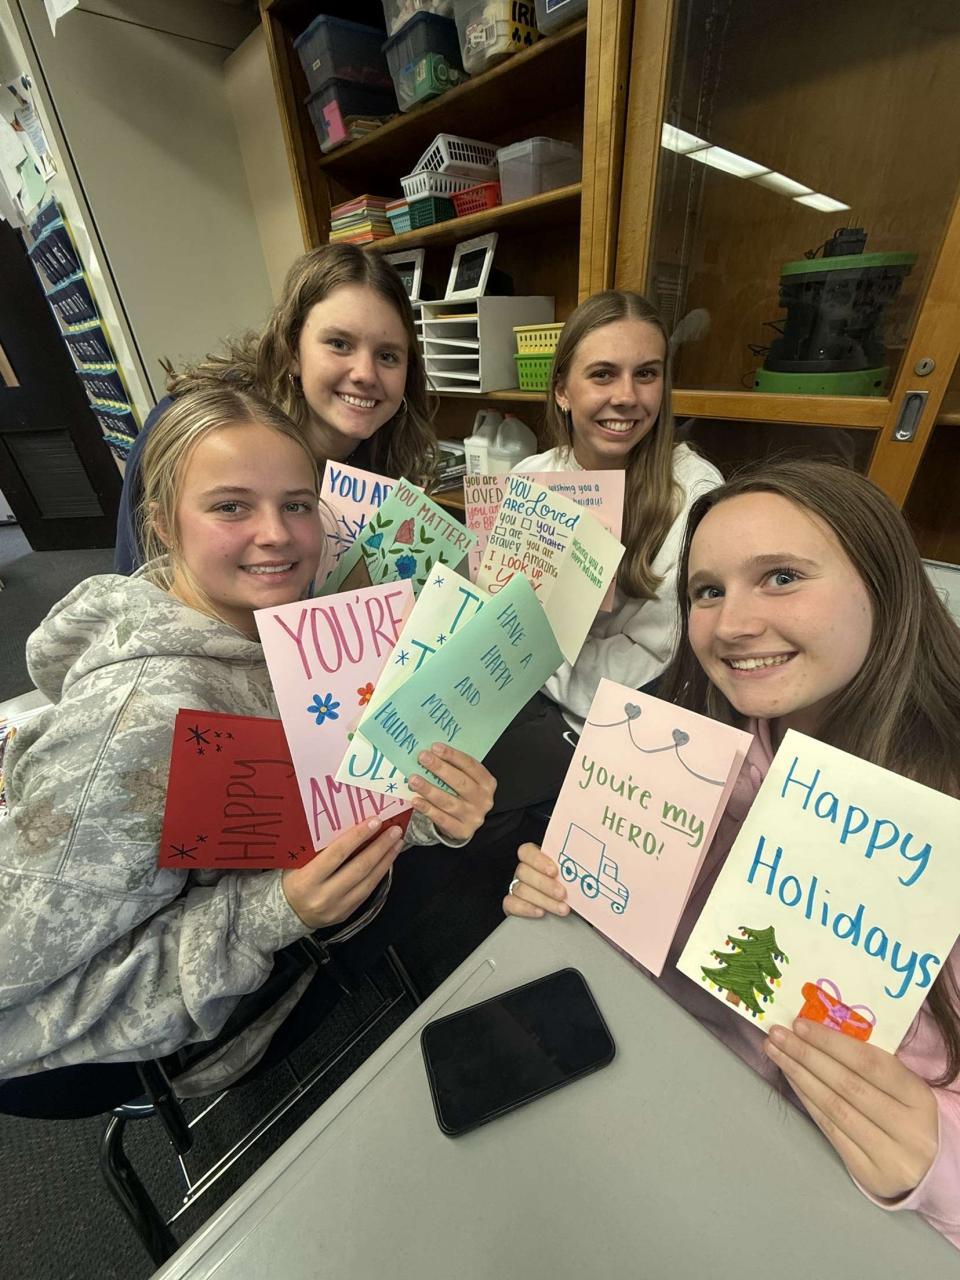 YOU AR
YOU MATTER!
you are
LOVED
YOU
ARE Loved
you you
are matter
Brave! you are
Amazing
I LOOK UP
wishing you a
holidays
wishing you a
happy holidays
YOU'RE
AMAZ
HAVE A
HAPPY
AND
MERRY
HOLIDAY
HAPPY
you're my
HERO!
Happy
Holidays